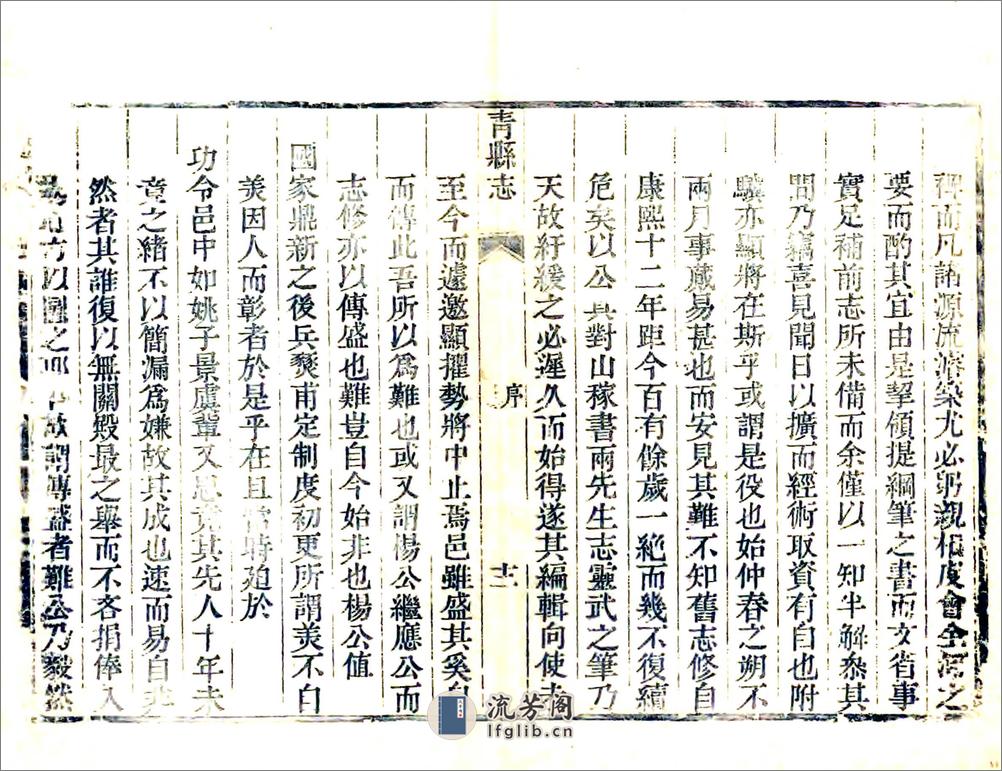 裨而凡誦源流濬築尤必躬親相度會全河之
要而酌其宜由是挈領提綱筆之書而文省事
實足補前志所未備而余僅以一知半解叅其
間乃竊喜見聞日以擴而經術取資有自也附
驥亦顯將在斯乎或謂是役也始仲春之朔不
兩月事蕆易甚也而安見其難不知舊志修自
康熙十二年距今百有餘歲一絶而幾不復續
危矣以公其對山稼書兩先生志靈武之筆乃
天故紆緩之必遲久而始得遂其編輯向使未
青縣志
序
十二
至今而遽邀顯擢勢將中止焉邑雖盛其奚自
而傳此吾所以爲難也或又謂楊公繼應公而
志修亦以傳盛也難豈自今始非也楊公值
國家鼎新之後兵燹甫定制度初更所謂美不自
美因人而彰者於是乎在且當時迫於
功令邑中如姚子景虞輩又思竟其先人十年未
竟之緒不以簡漏爲嫌故其成也速而易自非
然者其誰復以無關殿最之舉而不吝捐俸入
以圖之 謂傳盛者難公乃毅然
流芳阁
lfglib.cn